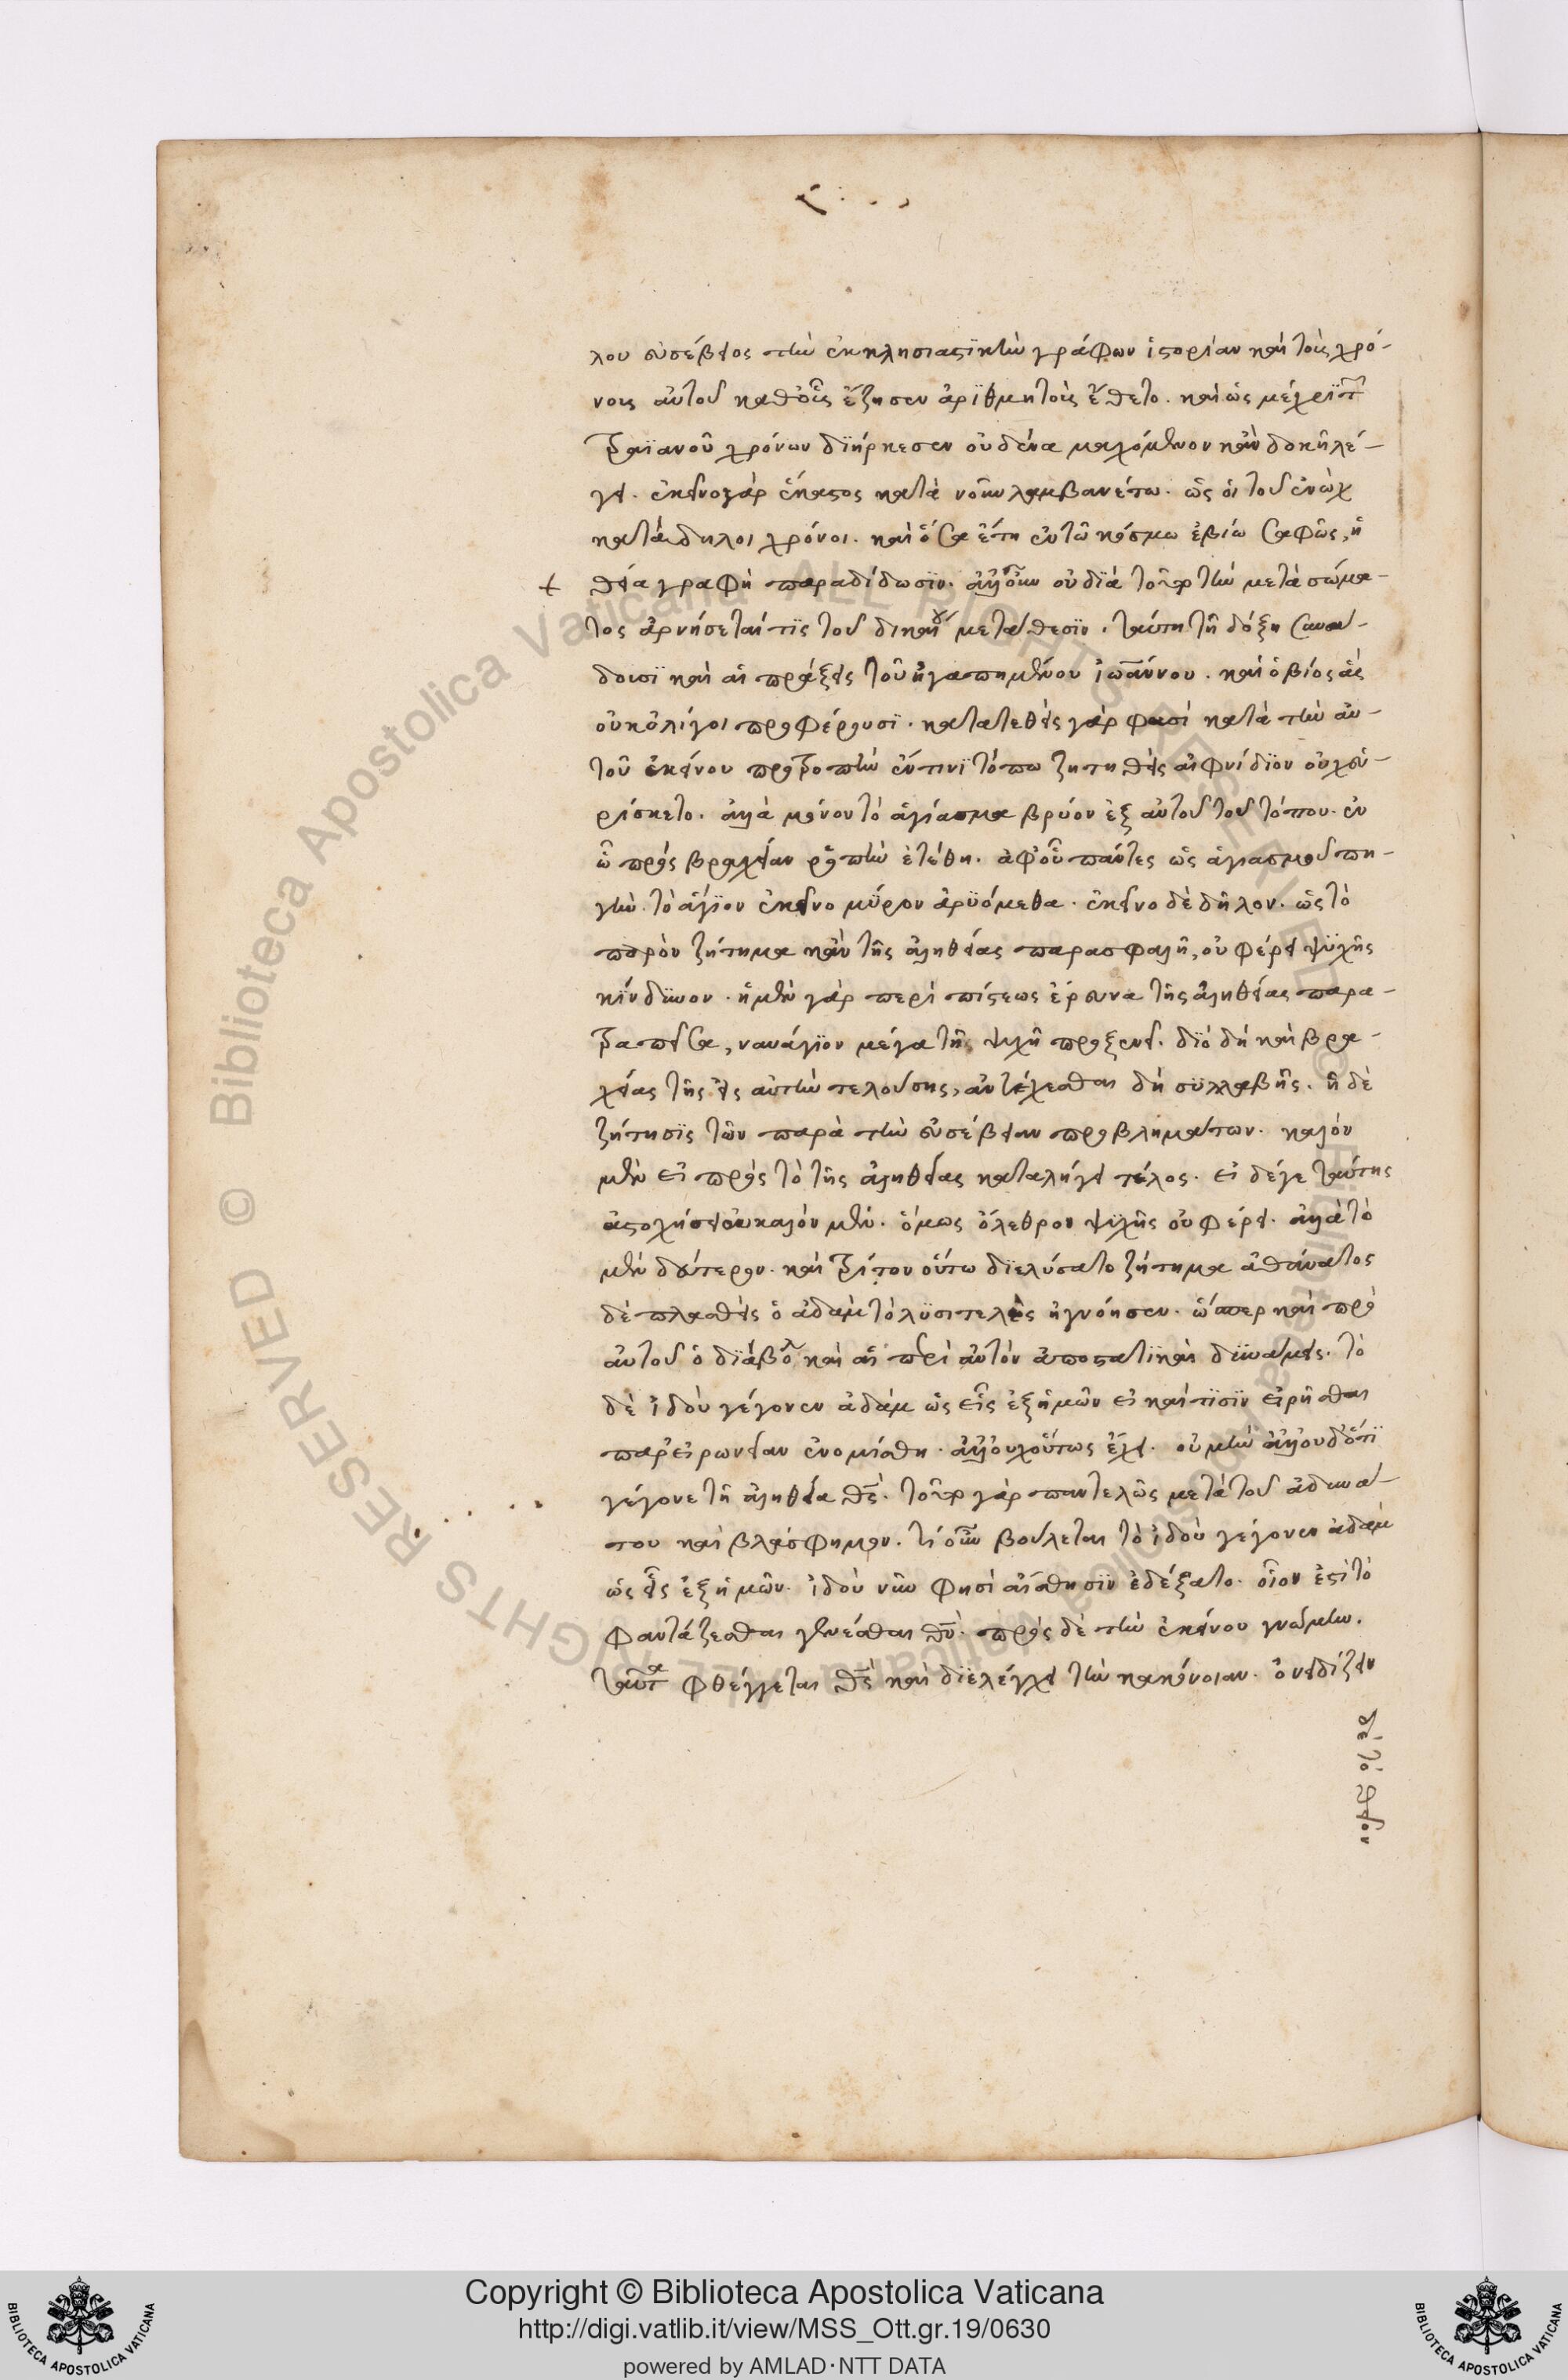 λου εὐσέβειος τὴν ἐκκλησιαστϊκὴν γράφων ἱστορίαν καὶ τοὺς χρό-
νους αὐτοῦ καθ' οὓς ἔζησεν ἀρϊθμητοὺς ἔθετο. καὶ ὡς μέχρϊ τῶν
τραϊανοῦ χρόνων δϊήρκεσεν οὐδένα μαχόμενον κἂν δοκῇ λέ-
γει. ἐκεῖνο γὰρ ἕκαστος κατὰ νοῦν λαμβανέτω. ὡς οἱ τοῦ ἐνὼχ
κατάδηλοι χρόνοι. καὶ ὅσα ἔτη ἐν τῷ κόσμω ἐβίω σαφῶς, ἡ
θεία γραφὴ παραδίδωσϊν. ἀλλ' οὖν οὐ δϊὰ τοῦτο τὴν μετὰ σώμα-
τος ἀρνήσεταί τϊς τοῦ δικαίου μετάθεσϊν. ταύτη τῇ δόξη συνᾴ-
δουσϊ καὶ αἱ πράξεις τοῦ ἠγαπημένου ἰωάννου. καὶ ὁ βίος ἃς
οὐκ ὀλίγοι προφέρουσϊ. κατατεθεὶς γάρ φασί κατὰ τὴν αὐ-
τοῦ ἐκείνου προτροπὴν ἔν τινϊ τόπω ζητηθεὶς αἰφνίδϊον οὐχ εὑ-
ρίσκετο. ἀλλὰ μόνον τὸ ἁγίασμα βρύον ἐξ αὐτοῦ τοῦ τόπου. ἐν
ᾧ πρὸς βραχεῖαν ῥοπὴν ἐτέθη. ἀφ' οὗ πάντες ὡς ἁγιασμοῦ πη-
γὴν. τὸ ἅγϊον ἐκεῖνο μύρον ἀρϋόμεθα. ἐκεῖνο δὲ δῆλον. ὡς τὸ
παρὸν ζήτημα κἂν τῆς ἀληθείας παρασφαλῇ, οὐ φέρει ψϋχῆς
κϊνδϋνον. ἡ μὲν γὰρ περὶ πίστεως ἔρευνα τῆς ἀληθείας παρα-
τραπεῖσα, ναυάγϊον μέγα τῇ ψυχῇ προξενεῖ. δϊὸ δὴ καὶ βρα-
χείας τῆς εἰς αὐτὴν τελούσης, ἀντέχεσθαι δὴ συλλαβῆς. ἡ δὲ
ζήτησϊς τῶν παρὰ τὴν εὐσέβειαν προβλημάτων. καλὸν
μὲν εἰ πρὸς τὸ τῆς ἀληθείας καταλήγει τέλος. εἰ δέ γε ταύτης
ἀστοχήσει οὐ καλὸν μὲν. ὅμως ὄλεθρον ψϋχῆς οὐ φέρει. ἀλλὰ τὸ
μὲν δεύτερον. καὶ τρίτον οὕτω δϊελύσατο ζήτημα ἀθάνατος
δὲ πλασθεὶς ὁ ἀδὰμ τὸ λϋσιτελὲς ἠγνόησεν. ὥσπερ καὶ πρὸ
αὐτοῦ ὁ δϊάβολ καὶ αἱ περὶ αὐτὸν ἀποστατϊκαὶ δυνάμεις. τὸ
δὲ ἰδοὺ γέγονεν ἀδάμ ὡς εἷς ἐξ ἡμῶν εἰ καί τισϊν εἰρῆσθαι
παρ' εἰρωνείαν ἐνομίσθη. ἀλλ' οὐχ οὕτως ἔχει. οὐ μὴν ἀλλ' οὐδ' ὅτϊ
γέγονε τῇ ἀληθεία θς. τοῦτο γὰρ παντελῶς μετὰ τοῦ ἀδυνά-
του καὶ βλάσφημον. τί οὖν βούλεται τὸ ἰδοὺ γέγονεν ἀδὰμ
ὡς εἷς ἐξ ἡμῶν. ἰδοὺ νῦν φησὶ αἴσθησϊν ἐδέξατο. οἷον ἐστὶ τὸ
φαντάζεσθαι γενέσθαι θν. πρὸς δὲ τὴν ἐκείνου γνώμην.
ταῦτα φθέγγεται θς καὶ δϊελέγχει τὴν κακόνοιαν. ὀνειδίζειν
δὲ τὸ